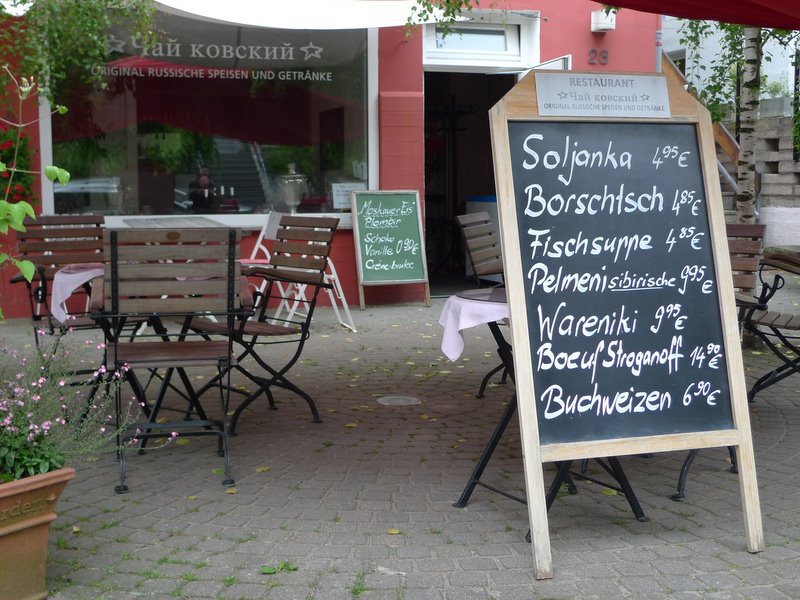 ☆ Чай ковский ☆
ORIGINAL RUSSISCHE SPEISEN UND GETRÄNKE
23
Moskauer Eis
Plombir
Schoko
Vanille 0,90€
Crème-brulee
RESTAURANT
☆ Чай ковский ☆
ORIGINAL RUSSISCHE SPEISEN UND GETRÄNKE
Soljanka 4,95€
Borschtsch 4,85€
Fischsuppe 4,85€
Pelmeni sibirische 9,95€
Wareniki 9,95€
Boeuf Stroganoff 14,90€
Buchweizen 6,90€